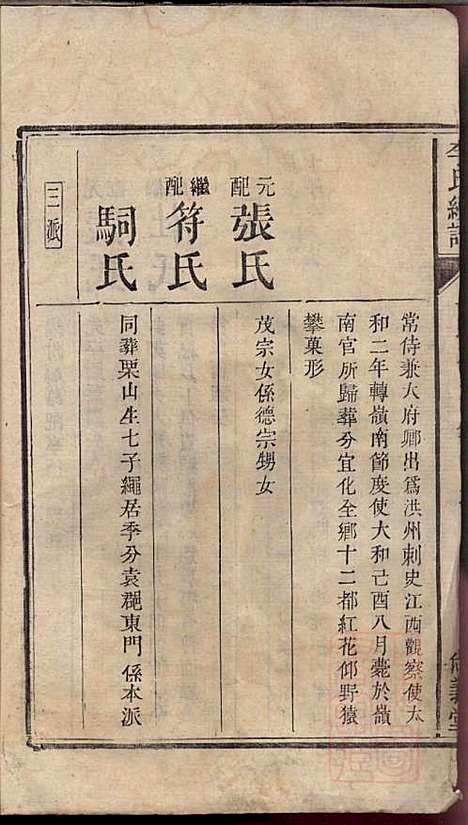 李氏總譜
常侍兼大府卿出爲洪州刺史江西觀察使太
和二年轉嶺南節度使大和己酉八月薨於嶺
南官所歸葬分宜化全鄉十二都紅花仰野猿
攀菓形
元配張氏
茂宗女係德宗甥女
繼配符氏
駉氏
同葬栗山生七子繩居季分袁郡東門係本派
三派